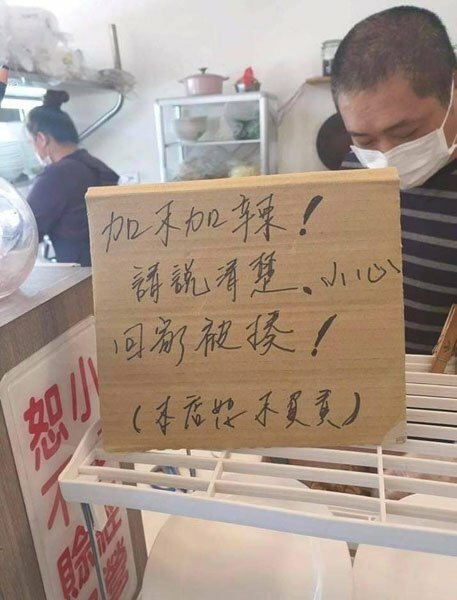 加不加辣！
請說清楚、小心
回家被揍！
（本店恕不負責）
小
營
恕不賒